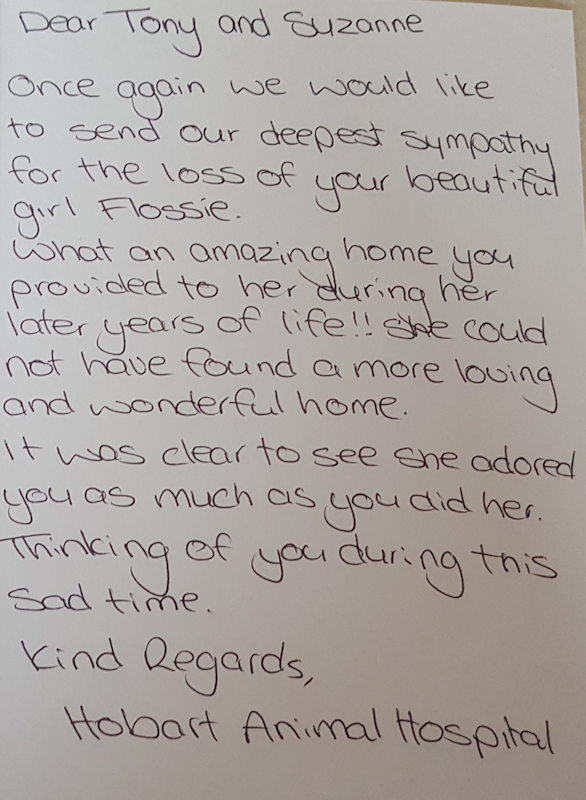 Dear Tony and Suzanne
Once again we would like
to send our deepest sympathy
for the loss of your beautiful
girl Flossie.
What an amazing home you
provided to her during her
later years of life!! She could
not have found a more loving
and wonderful home.
It was clear to see she adored
you as much as you did her.
Thinking of you during this
sad time.
Kind Regards,
Hobart Animal Hospital